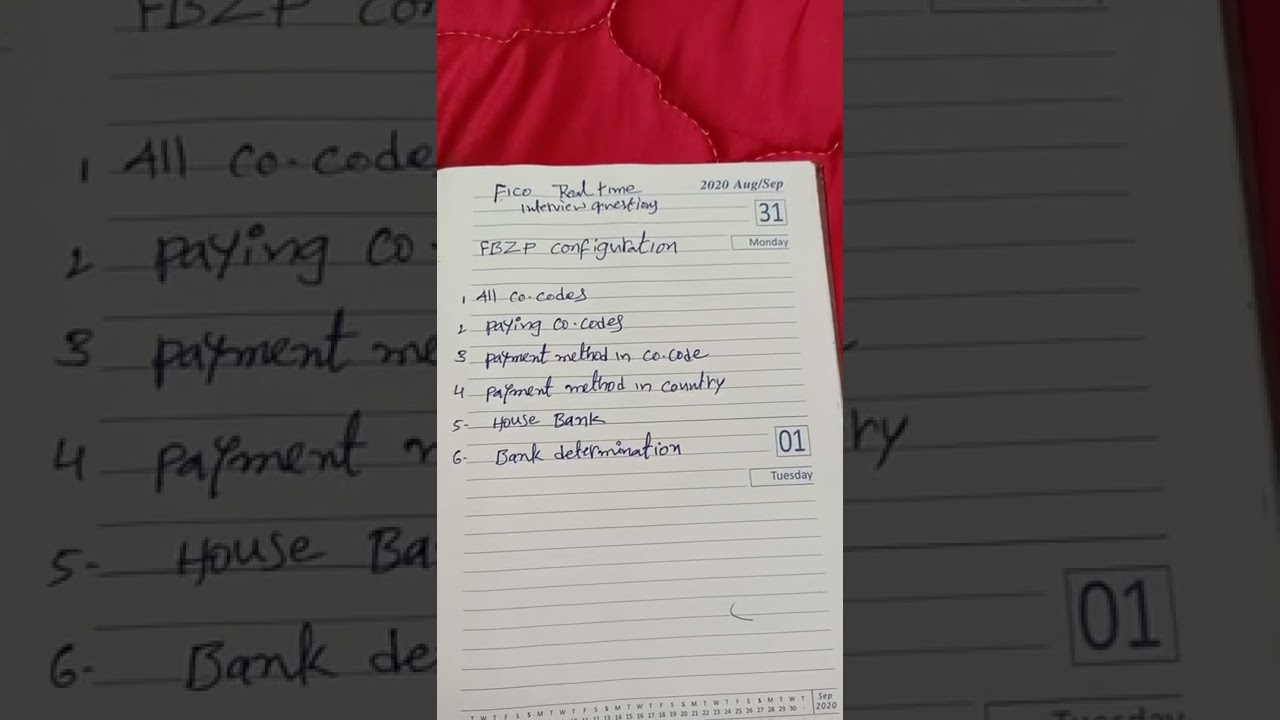 FICO Real time
2020 Aug/Sep
interview question
31
FBZP configuration
Monday
1 All co-codes
2 paying co-codes
3 payment method in co-code
4 payment method in country
5- House Bank
6- Bank determination
01
Tuesday
Sep
2020